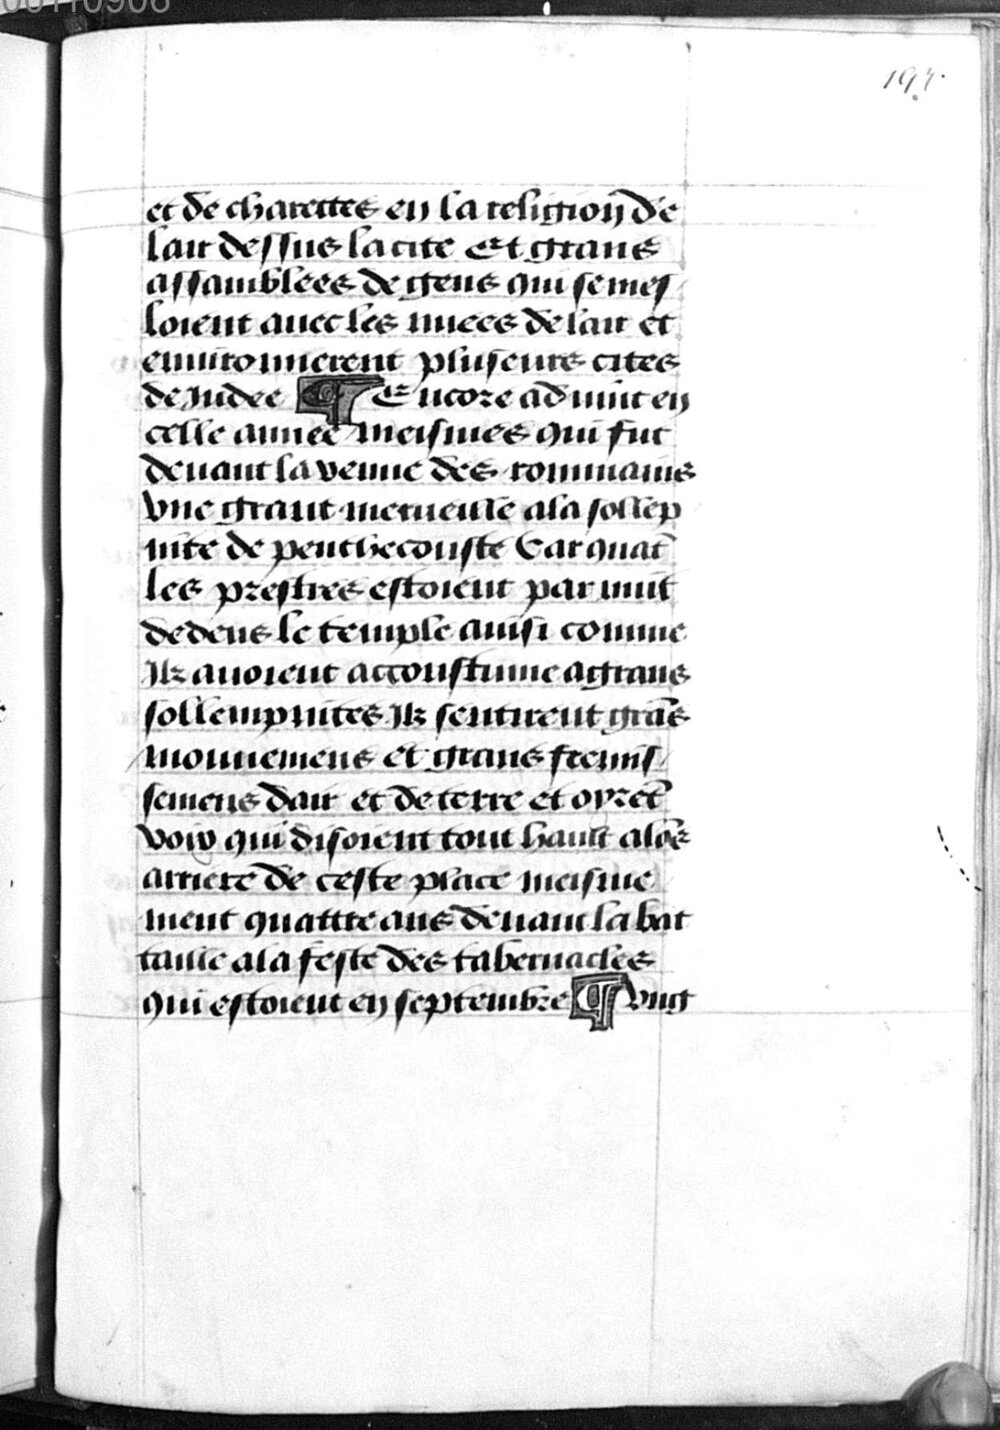 197.
et de charettes en la religion de
lair dessus la cite Et grans
assamblees de gens qui se mes
loient auec les nuees de lair et
enuironnerent pluseurs cites
de Judee ¶ Encore aduint en
celle annee meismes qui fut
deuant la venue des rommains
vne grant merueille a la sollep
nite de penthecouste Car quāt
les prestres estoient par nuit
dedens le temple ainsi comme
Ilz auoient accoustume a grans
sollempnites Ilz sentirent grās
mouuemens et grans fremis
semens dair et de terre et oyrēt
voix qui disoient tout hault alōs
arriere de ceste place meisme
ment quattre ans deuant la bat
taille a la feste des tabernacles
qui estoient en septembre ¶ vng